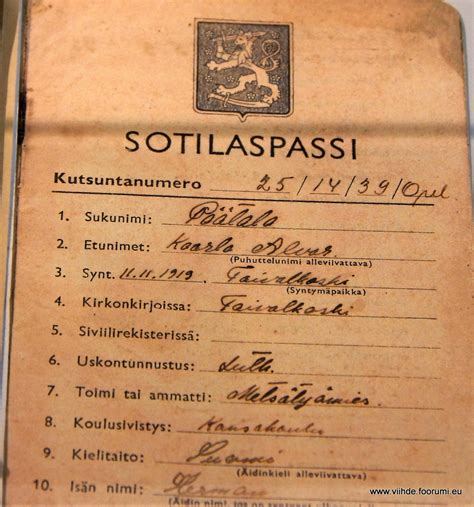 SOTILASPASSI
Kutsuntanumero 25/14/39/Opel
1. Sukunimi: Päätalo
2. Etunimet: Kaarlo Alvar
(Puhuttelunimi alleviivattava)
3. Synt. 11.11.1919. Taivalkoski
(Syntymäpaikka)
4. Kirkonkirjoissa: Taivalkoski
5. Siviilirekisterissä:
6. Uskontunnustus: Luth.
7. Toimi tai ammatti: Metsätyömies.
8. Koulusivistys: Kansakoulu
9. Kielitaito: Suomi
(Äidinkieli alleviivattava)
10. Isän nimi: Herman
www.viihde.foorumi.eu